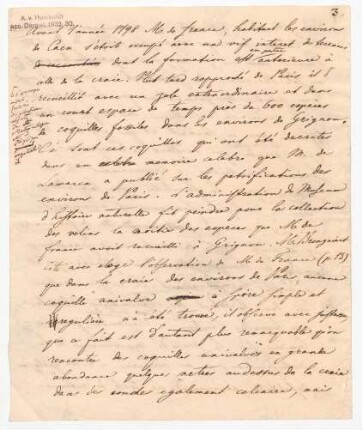 A. v. Humboldt
3
Avant l'année 1798 M. de france, habitant les environs
de Caen s'etoit occupé avec un vif interet de terrains
dont la formation est en partie anterieure à
celle de la craie. Plus tard rapproché de Paris il
recueillit avec un zele extraordinaire et dans
un court espace de temps près de 600 especes
de coquilles fossiles dans les environs de Grignon.
Ce sont ces coquilles qui ont été decrites
dans un memoire celebre que M. de
Lamarck a publié sur les petrifications des
environs de Paris. L'administration du Museum
d'histoire naturelle fit peindre pour la collection
des velins la moitié des especes que M. de
france avoit recueilli à Grignon. M. Brongniart
cite avec eloge l'observation de M. de France (p. 13)
que dans la craie des environs de Paris aucune
coquille univalve à spire simple et
reguliere n'a été trouvée, il observe avec justesse
que ce fait est d'autant plus remarquable qu'on
rencontre des coquilles univalves en grande
abondance quelques metres audessus de la craie
dans des couches egalement calcaires, mais